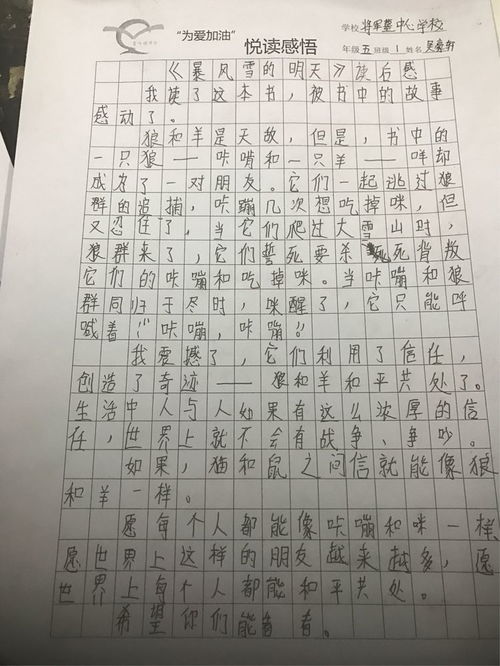 学校 将军墓中心学校
"为爱加油" 悦读感悟
年级 五 班级 1 姓名 吴豪轩
《暴风雪的明天》读后感
我读了这本书，被书中的故事
感动了。
狼和羊是天敌，但是，书中的
一只狼——咔嘣和一只羊——咩却
成为了一对朋友。它们一起逃过狼
群的追捕，咔蹦几次想吃掉咪，但
又忍住了，当它们爬过大雪山时，
狼群来了，它们誓死要杀死背叛
它们的咔嘣和吃掉咪。当咔嘣和狼
群同归于尽时，咪醒了，它只能呼
喊着："咔嘣，咔嘣！"
我震撼了，它们利用了信任，
创造了奇迹——狼和羊和平共处了。
生活中人与人如果有这么浓厚的信
任，世界上就不会有战争、争吵。
如果，猫和鼠之间信就能像狼
和羊一样。
愿每个人都能像咔嘣和咪一样，
愿世界上这样的朋友越来越多，愿
世界上每个人都能和平共处。
希望你们能有。